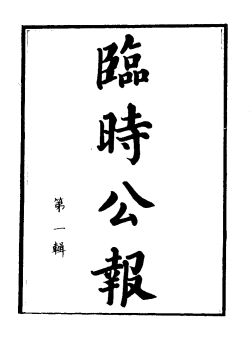 臨時公報
第一輯